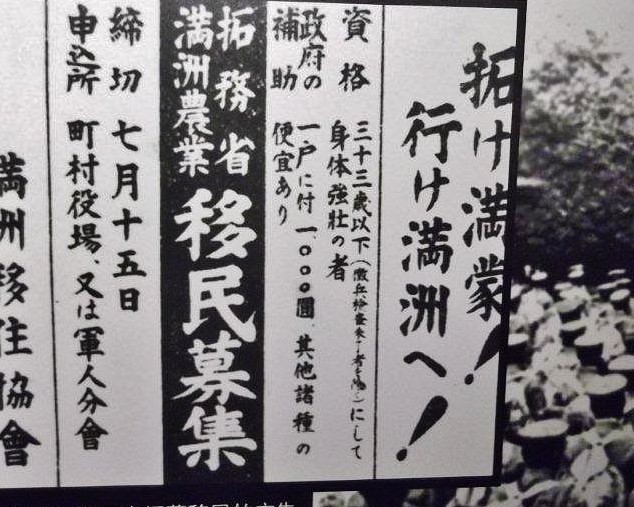 拓け満蒙!
行け満洲へ!
資格
三十三歳以下(徴兵検査未了者を除く)にして
身体強壮の者
政府の
補助
一戸に付一、〇〇〇圓、其他諸種の
便宜あり
拓務省
満洲農業
移民募集
締切 七月十五日
申込所 町村役場、又は軍人分會
満洲移住協會